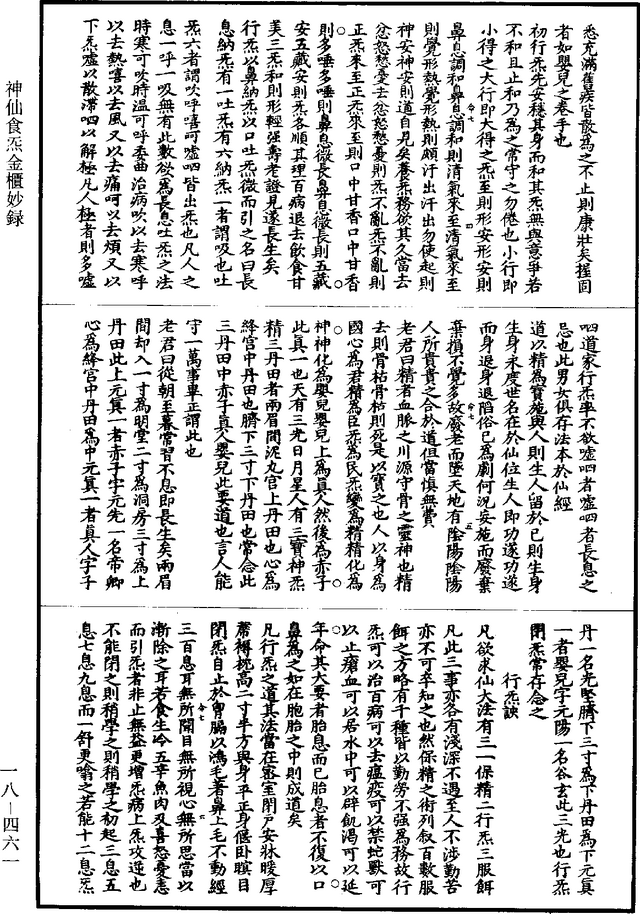 神仙食炁金櫃妙録
悉充滿舊疾皆散為之不止則康壯矣握固
者如嬰兒之卷手也
初行炁先安穩其身而和其炁無與意爭若
不和且止和乃為之常守之勿倦也小行即
小得之大行即大得之炁至則形安形安則
鼻息調和鼻息調和則清氣來至清氣來至
則覺形熱覺形熱則頗汗出汗出勿使起則
神安神安則道自見矣養炁務欲其久當去
忿怒愁憂去忿怒愁憂則炁不亂炁不亂則
正炁來至正炁來至則口中甘香口中甘香
則多唾多唾則鼻息微長鼻息微長則五藏
安五藏安則炁各順其理百病退去飲食甘
美三炁和則形輕強壽老證見遂長生矣
行炁以鼻納炁以口吐炁微而引之名曰長
息納炁有一吐炁有六納炁一者謂吸也吐
炁六者謂吹呼嘻呵噓呬皆出炁也凡人之
息一呼一吸無有此數欲為長息吐炁之法
時寒可吹時溫可呼委曲治病吹以去寒呼
以去熱嘻以去風又以去痛呵以去煩又以
下炁噓以散滯呬以解極凡人極者則多噓
呬道家行炁率不欲噓呬者噓呬者長息之
忌也此男女俱存法本於仙經
道以精為寶施與人則生人留於已則生身
生身永度世名在於仙位生人即功遂功遂
而身退身退陷俗已為劇何況妄施而廢棄
棄損不覺多故廢老而墜天地有陰陽陰陽
人所貴貴之合於道但當慎無費
老君曰精者血脈之川源守骨之靈神也精
去則骨枯骨枯則死是以寶之也人以身為
國心為君精為臣炁為民炁變為精精化為
神神化為嬰兒嬰兒上為真人然後為赤子
此真一也天有三光日月星人有三寶神炁
精三丹田者兩眉間泥丸宮上丹田也心為
絳宮中丹田也臍下三寸下丹田也常念此
三丹田中赤子真人嬰兒此要道也言人能
守一萬事畢正謂此也
老君曰從朝至暮常習不息即長生矣兩眉
間却入一寸為明堂二寸為洞房三寸為上
丹田此上元真一者赤子字元先一名帝卿
心為絳宮中丹田為中元真一者真人字子
丹一名先堅臍下三寸為下丹田為下元真
一者嬰兒字元陽一名谷玄此三光也行炁
閉炁常存念之
行炁訣
凡欲求仙大法有三一保精二行炁三服餌
凡此三事亦各有淺深不遇至人不涉勤苦
亦不可卒知之也然保精之術列叙百數服
餌之方略有千種皆以勤勞不強為務故行
炁可以治百病可以去瘟疫可以禁蛇獸可
以止瘡血可以居水中可以辟飢渴可以延
年命其大要者胎息而已胎息者不復以口
鼻為之如在胞胎之中則成道矣
凡行炁之道其法當在密室閉戶安牀暖厚
蓆褥枕高二寸半方與身平正身偃卧瞑目
閉炁自止於胷膈以鴻毛著鼻上毛不動經
三百息耳無所聞目無所視心無所思當以
漸除之耳若食生冷五辛魚肉及喜怒憂恚
而引炁者非止無益更增炁病上炁攻逆也
不能閉之則稍學之則稍學之初起三息五
息七息九息而一舒更噏之若能十二息炁
一八—四六一